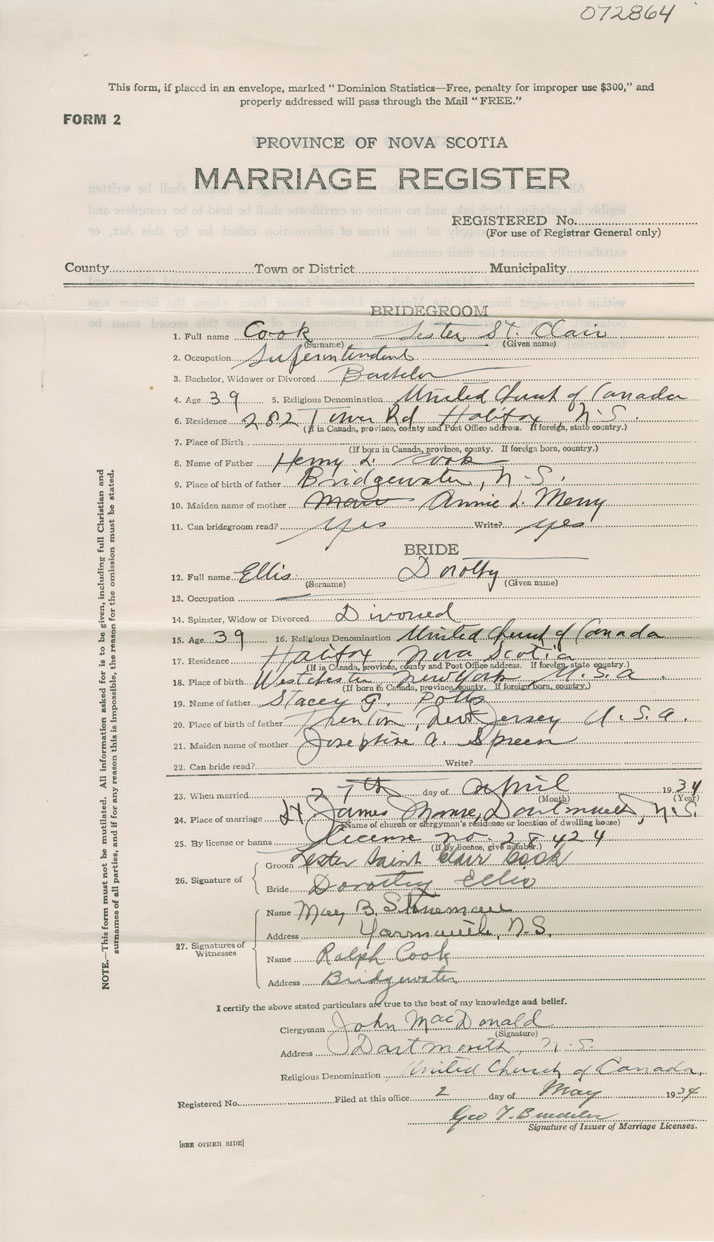 072864
This form, if placed in an envelope, marked "Dominion Statistics—Free, penalty for improper use $300," and
properly addressed will pass through the Mail "FREE."
FORM 2
PROVINCE OF NOVA SCOTIA
MARRIAGE REGISTER
REGISTERED No.
(For use of Registrar General only)
County Town or District Municipality
BRIDEGROOM
1. Full name Cook Lester St. Clair
(Surname) (Given name)
2. Occupation Superintendent
3. Bachelor, Widower or Divorced Bachelor
4. Age 39 5. Religious Denomination United Church of Canada
6. Residence 282 Tower Rd Halifax N.S.
(If in Canada, province, county and Post Office address. If foreign, state country.)
7. Place of Birth
(If born in Canada, province, county. If foreign born, country.)
8. Name of Father Henry L. Cook
9. Place of birth of father Bridgewater, N.S.
10. Maiden name of mother Annie L. Merry
11. Can bridegroom read? yes Write? yes
BRIDE
12. Full name Ellis Dorothy
(Surname) (Given name)
13. Occupation —
14. Spinster, Widow or Divorced Divorced
15. Age 39 16. Religious Denomination United Church of Canada
17. Residence Halifax, Nova Scotia
(If in Canada, province, county and Post Office address. If foreign, state country.)
18. Place of birth Westchester New York U.S.A.
(If born in Canada, province, county. If foreign born, country.)
19. Name of father Stacey G. Potts
20. Place of birth of father Trenton, New Jersey U.S.A.
21. Maiden name of mother Josephine A. Spreen
22. Can bride read? Write?
23. When married 27th day of April 1934
(Month) (Year)
24. Place of marriage St James Manse, Dartmouth, N.S.
(Name of church or clergyman's residence or location of dwelling house)
25. By license or banns License no. 28424
(If by licence, give number.)
26. Signature of
Groom Lester Saint Clair Cook
Bride Dorothy Ellis
27. Signatures of Witnesses
Name May B. Stoneman
Address Yarmouth, N.S.
Name Ralph Cook
Address Bridgewater
I certify the above stated particulars are true to the best of my knowledge and belief.
Clergyman John MacDonald
(Signature)
Address Dartmouth, N.S.
Religious Denomination United Church of Canada,
Registered No. Filed at this office 2 day of May 1934
Geo
Signature of Issuer of Marriage Licenses.
[SEE OTHER SIDE]
NOTE.—This form must not be mutilated. All information asked for is to be given, including full Christian and
surnames of all parties, and if for any reason this is impossible, the reason for the omission must be stated.